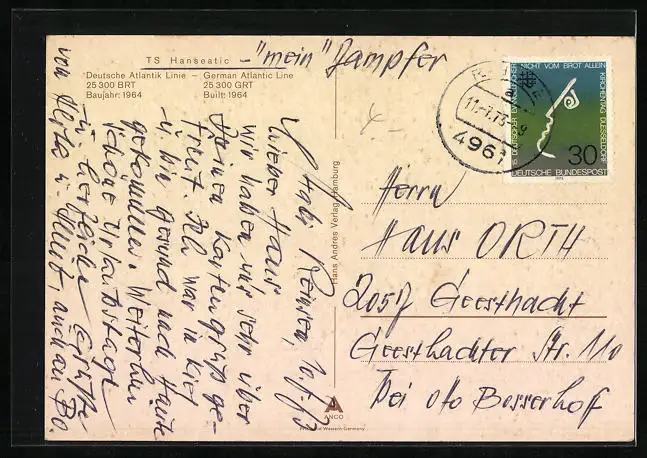 TS Hanseatic - "mein" Dampfer
Deutsche Atlantik Linie — German Atlantic Line
25 300 BRT 25 300 GRT
Baujahr: 1964 Built: 1964
Hans Andres Verlag, Hamburg
ANCO
Printed in Western Germany
11.-7.73
4961
NICHT VOM BROT ALLEIN
KIRCHENTAG DÜSSELDORF
15. DEUTSCHER EVANGELISCHER
30
DEUTSCHE BUNDESPOST
Herrn
Hans ORTH
2057 Geesthacht
Geesthachter Str. 110
bei Otto Besserhoff
10.7.73
Lieber Hans
wir haben uns sehr über
Deinen Kartengruß ge-
freut. Ich war in Kiel
u. bin gesund nach Hause
gekommen. Weiterhin
schöne Urlaubstage
u. herzliche Grüße
von